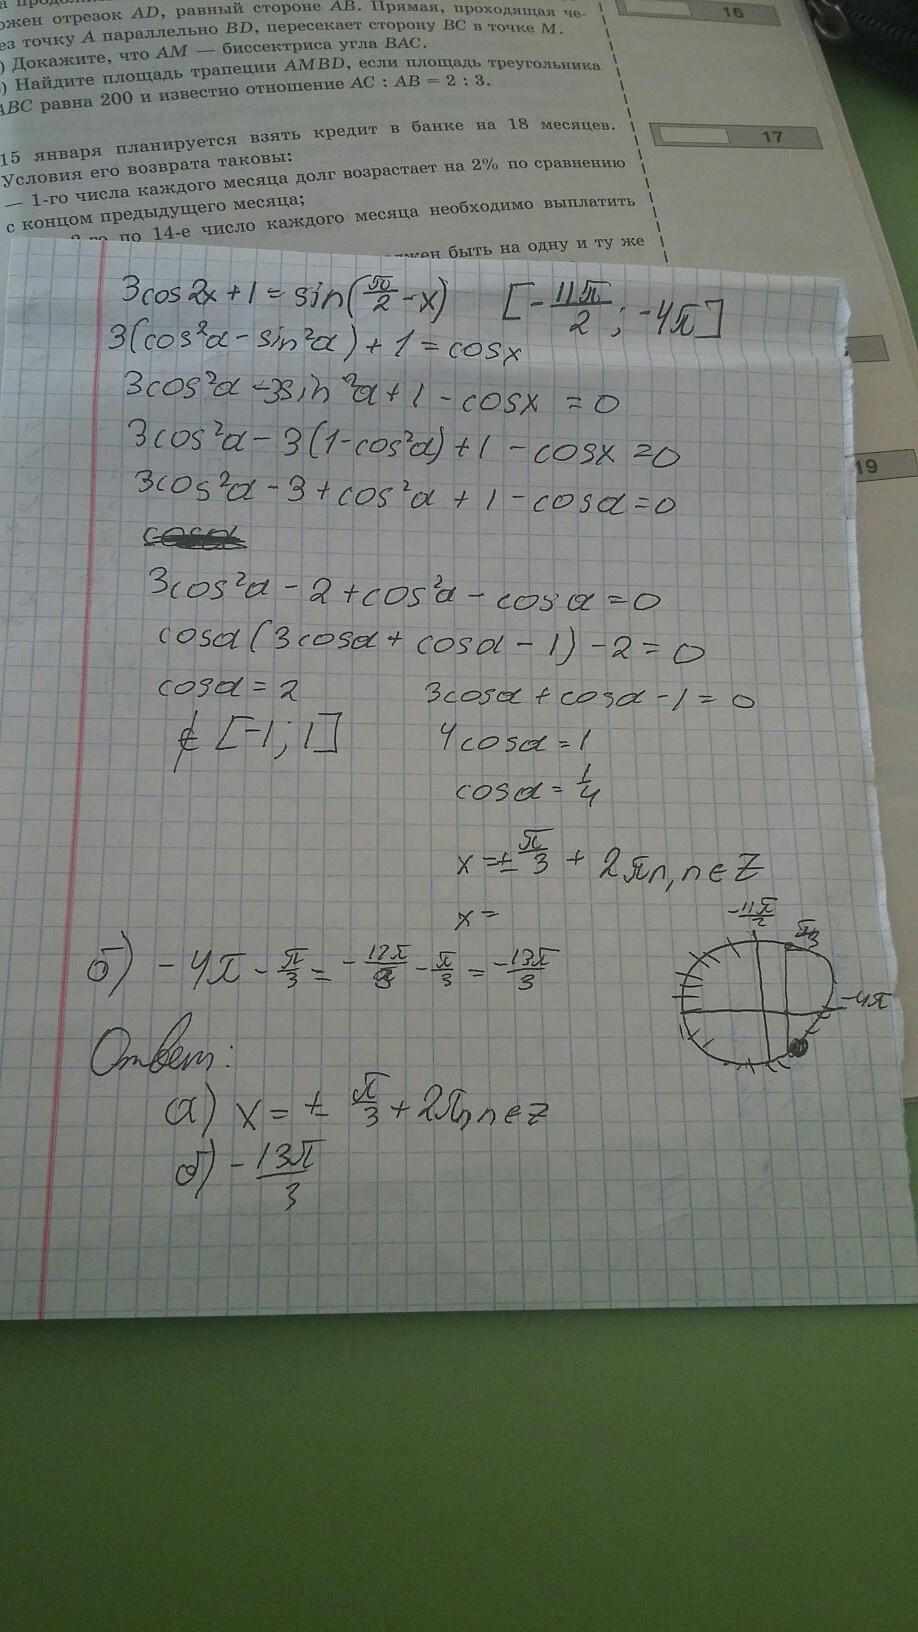 ожен отрезок AD, равный стороне AB. Прямая, проходящая че-
ез точку A параллельно BD, пересекает сторону BC в точке M.
) Докажите, что AM — биссектриса угла BAC.
) Найдите площадь трапеции AMBD, если площадь треугольника
ABC равна 200 и известно отношение AC : AB = 2 : 3.
16
15 января планируется взять кредит в банке на 18 месяцев.
Условия его возврата таковы:
— 1-го числа каждого месяца долг возрастает на 2% по сравнению
с концом предыдущего месяца;
по 14-е число каждого месяца необходимо выплатить
быть на одну и ту же
17
19
3cos2x+1 = sin(π/2 - x) [-11π/2 ; -4π]
3(cos²α - sin²α) + 1 = cosx
3cos²α - 3sin²α + 1 - cosx = 0
3cos²α - 3(1-cos²α) + 1 - cosx = 0
3cos²α - 3 + cos²α + 1 - cosα = 0
3cos²α - 2 + cos²α - cosα = 0
cosα(3cosα + cosα - 1) - 2 = 0
cosα = 2 3cosα + cosα - 1 = 0
∉ [-1; 1] 4cosα = 1
cosα = 1/4
x = ± π/3 + 2πn, n ∈ Z
x =
-11π/2
π/3
-4π
б) -4π - π/3 = -12π/3 - π/3 = -13π/3
Ответ:
а) x = ± π/3 + 2πn, n ∈ Z
б) -13π/3